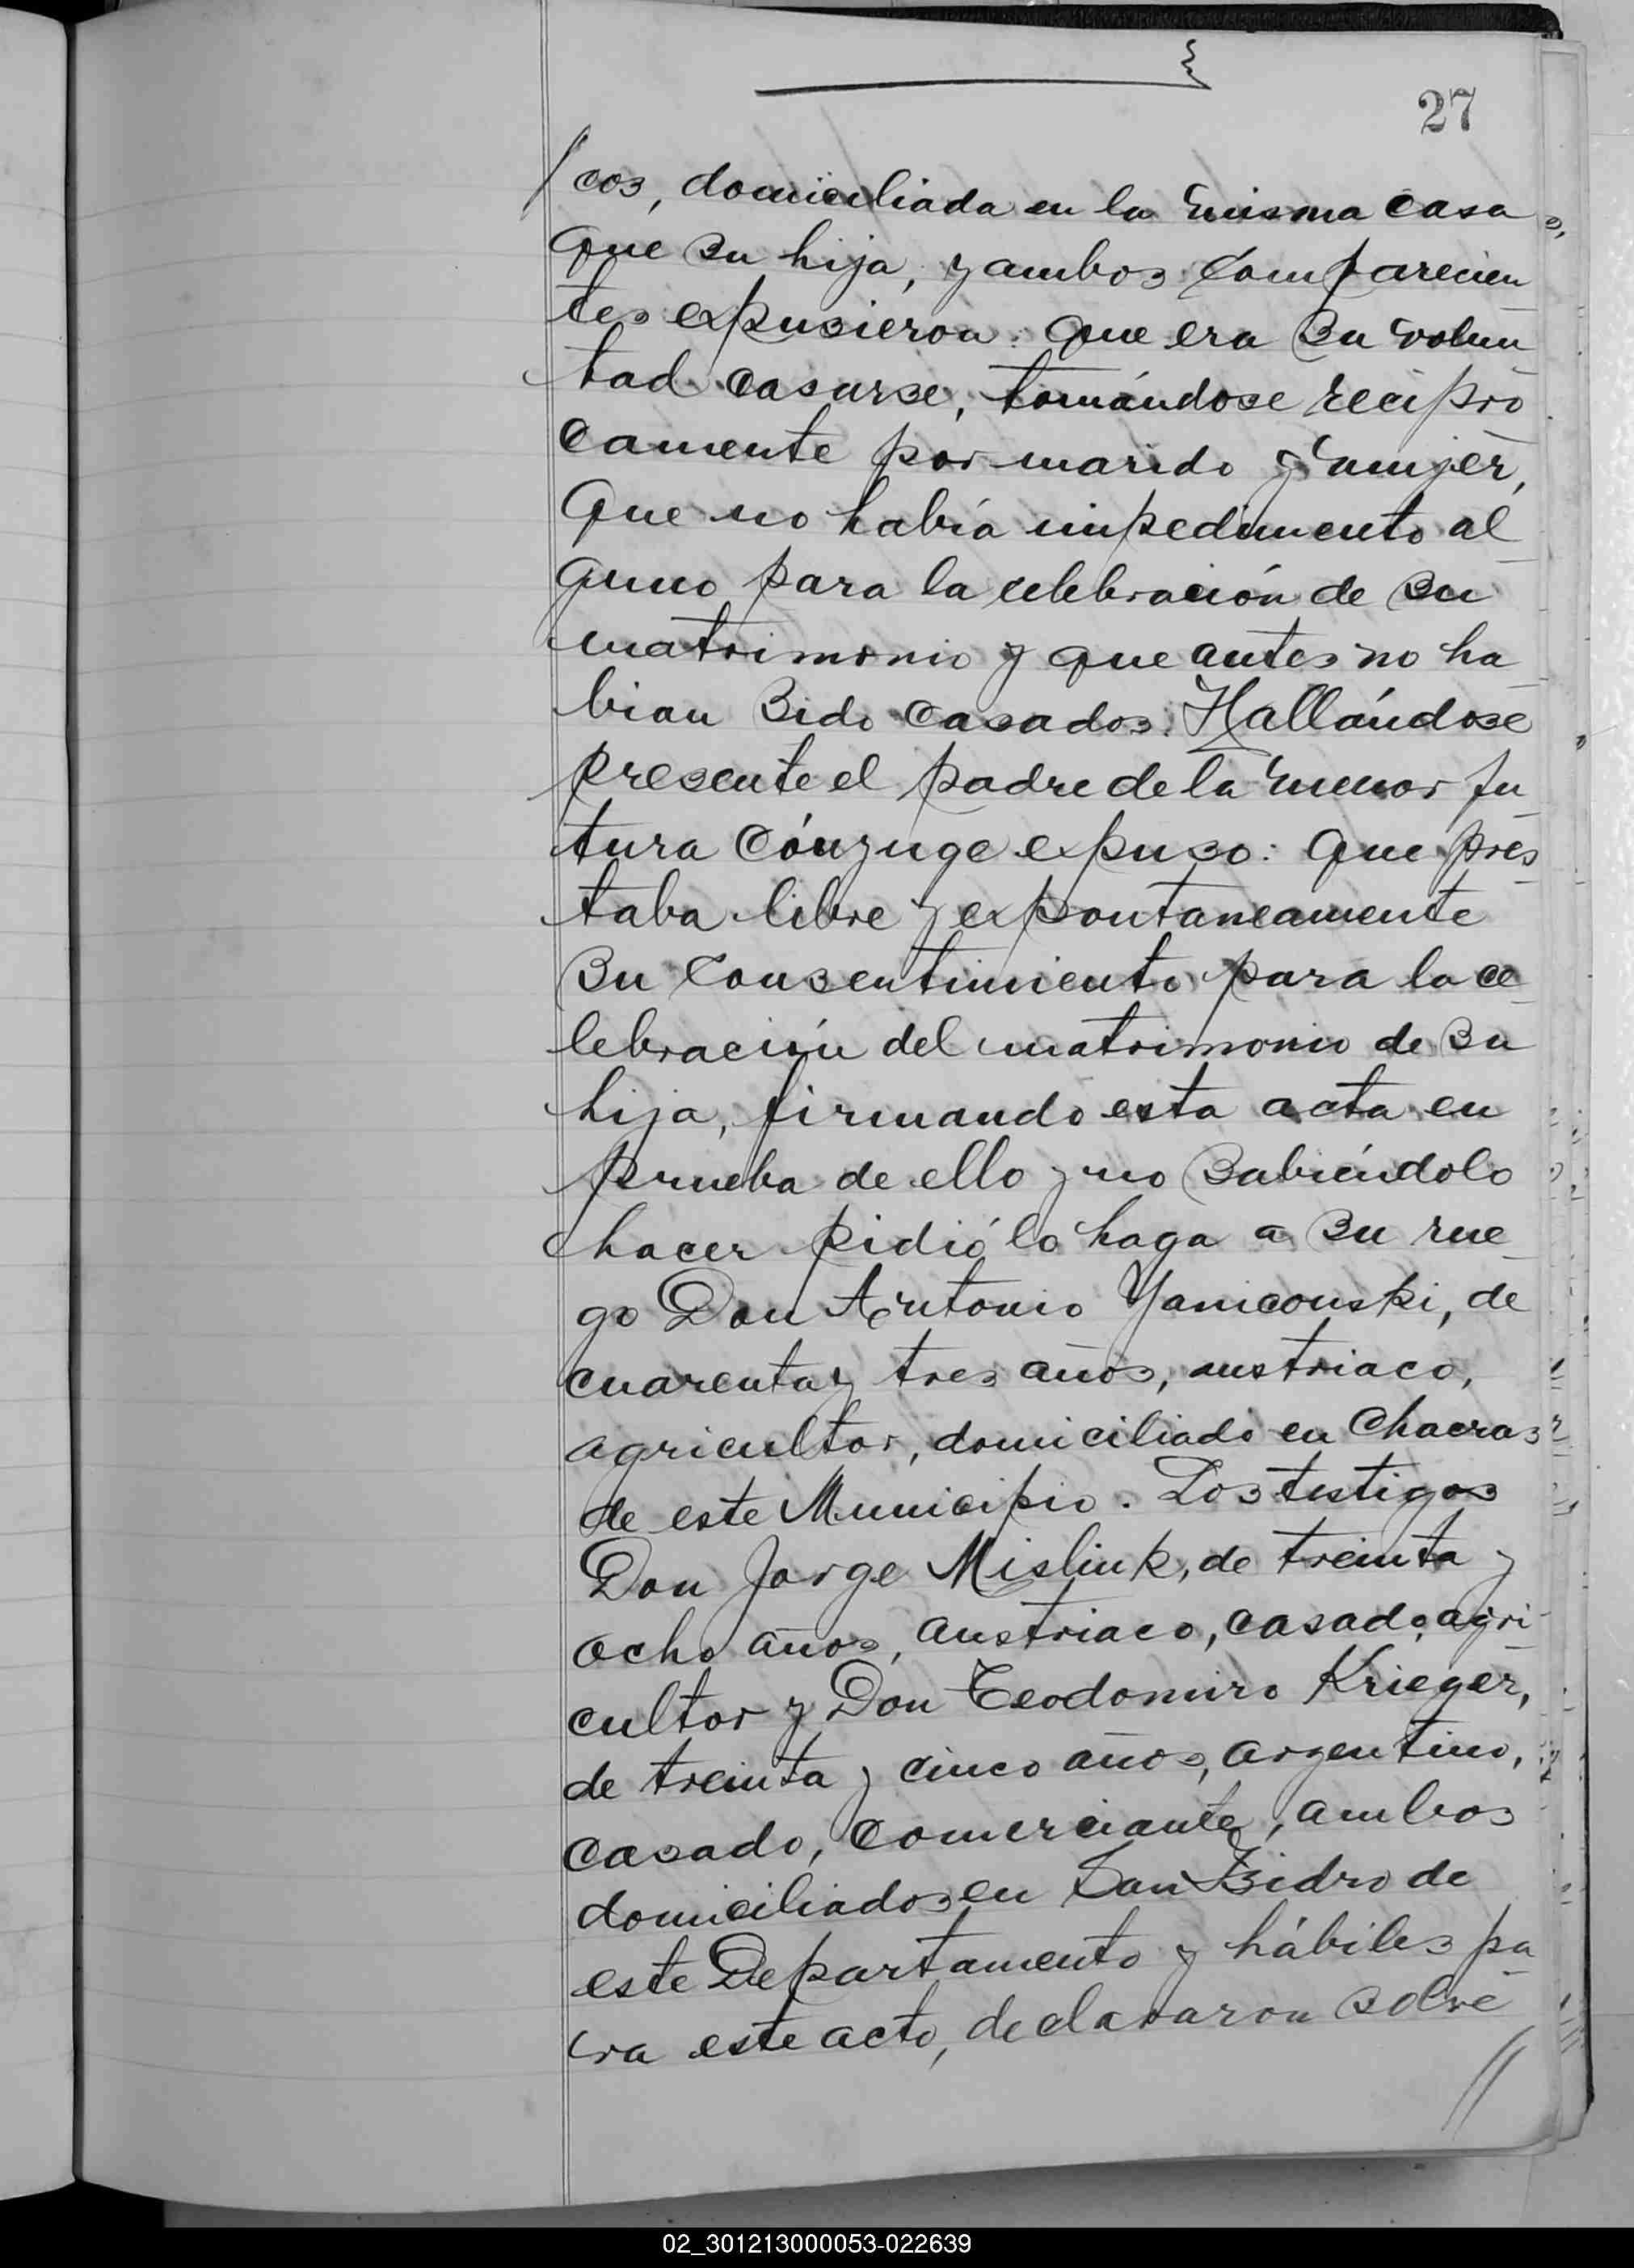 27
/cos, domiciliada en la misma casa
que su hija, y ambos comparecien
tes expusieron: que era su volun
tad casarse, tomándose recipro
camente por marido y mujer,
que no había impedimento al
guno para la celebración de su
matrimonio y que antes no ha
bian sido casados. Hallándose
presente el padre de la menor fu
tura cónyuge expuso: que pres
taba libre y expontaneamente
su consentimiento para la ce
lebración del matrimonio de su
hija, firmando esta acta en
prueba de ello y no sabiéndolo
hacer pidió lo haga a su rue
go Don Antonio Yanicouski, de
cuarenta y tres años, austriaco,
agricultor, domiciliado en Chacras
de este Municipio. Los testigos
Don Jorge Misliuk, de treinta y
ocho años, austriaco, casado, agri
cultor y Don Teodomiro Krieger,
de treinta y cinco años, argentino,
casado, comerciante, ambos
domiciliados en San Isidro de
este Departamento y hábiles pa
ra este acto, declararon sobre
//
02_301213000053-022639